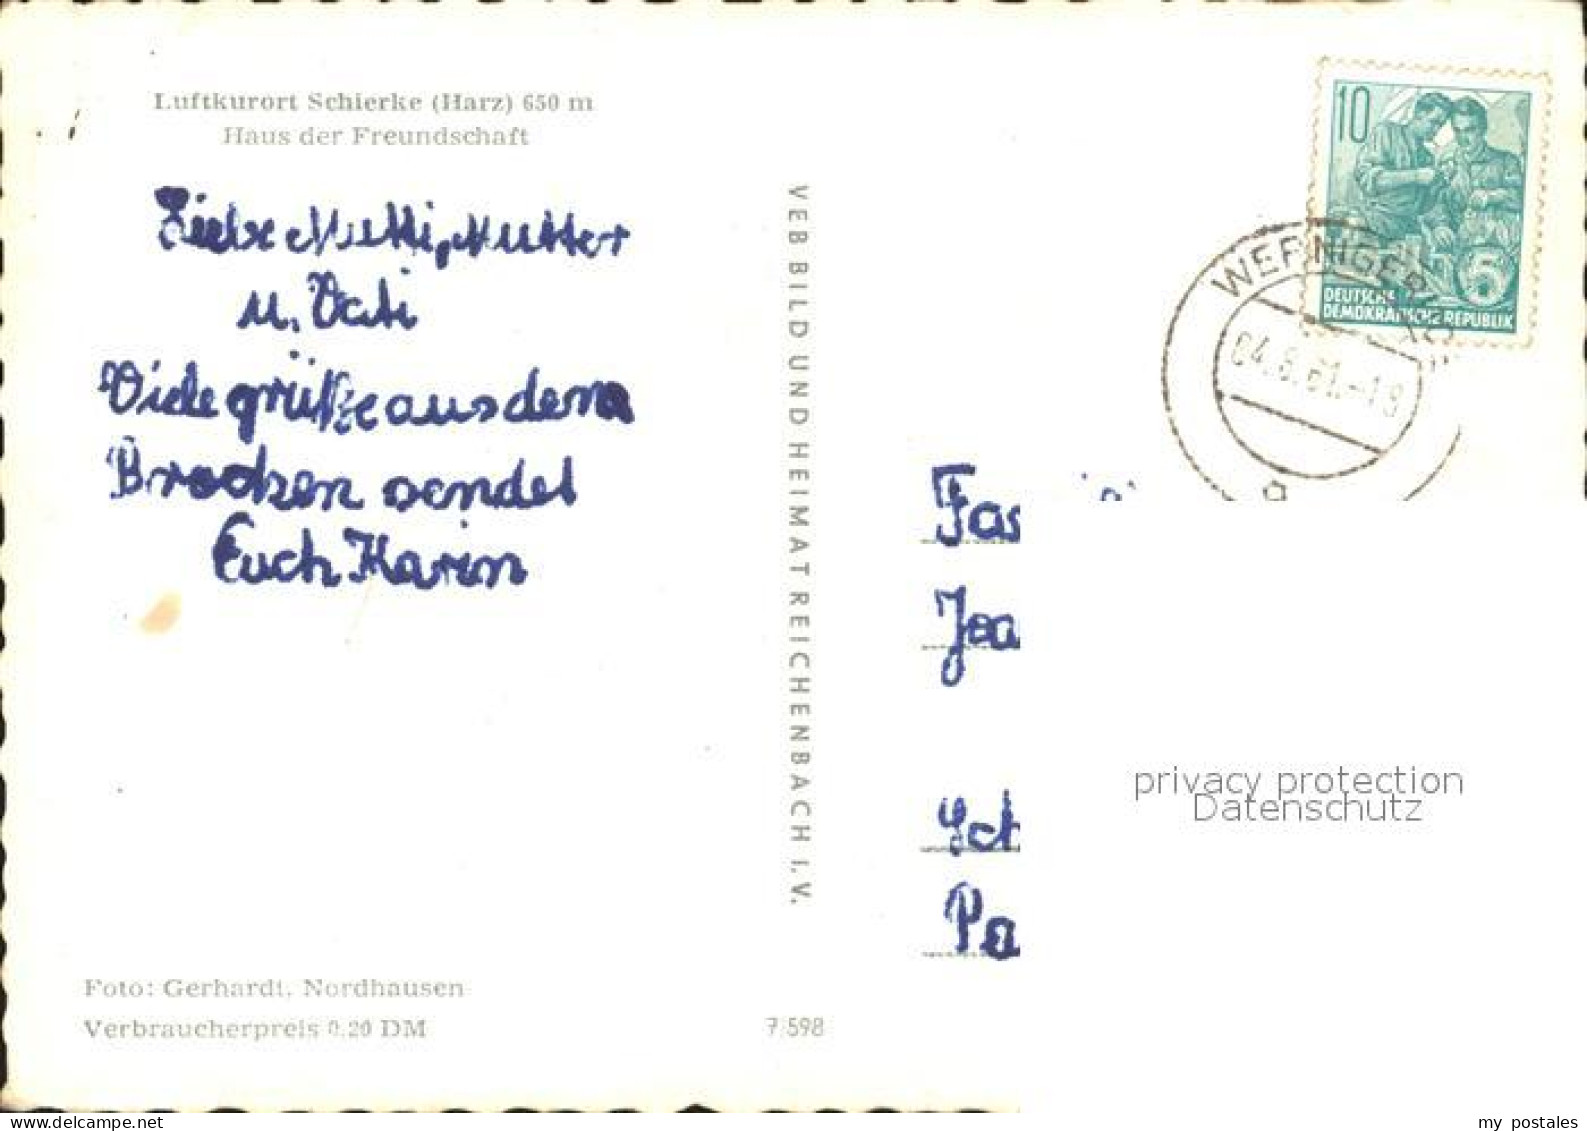 Luftkurort Schierke (Harz) 650 m
Haus der Freundschaft
Liebe Mutti, Mutter
u. Vati
Viele grüße aus dem
Brocken sendet
Euch Karin
Foto: Gerhardt, Nordhausen
Verbraucherpreis 0,20 DM
7/598
VEB BILD UND HEIMAT REICHENBACH I. V.
10
5
DEUTSCHE
DEMOKRATISCHE REPUBLIK
WERNIGERO
04.6.61.-19
a
Fas
Jea
Sch
Pa
privacy protection
Datenschutz
delcampe.net
my_postales